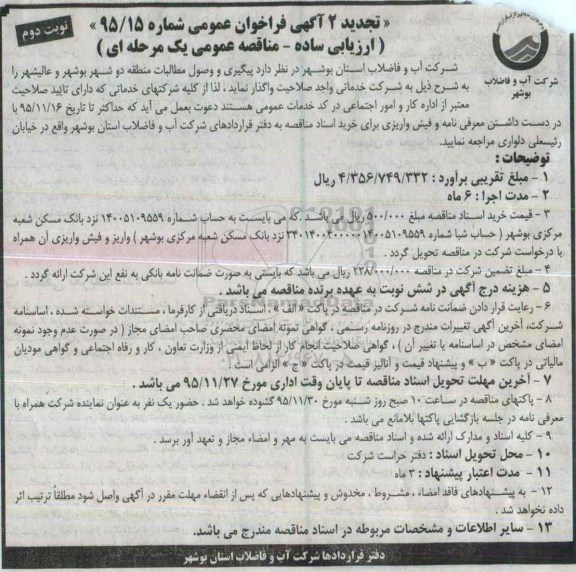 « تجدید ۲ آگهی فراخوان عمومی شماره ۹۵/۱۵ »
( ارزیابی ساده - مناقصه عمومی یک مرحله ای )
نوبت دوم
شرکت آب و فاضلاب
بوشهر
شرکت آب و فاضلاب استان بوشهر در نظر دارد پیگیری و وصول مطالبات منطقه دو شهر بوشهر و عالیشهر را
به شرح ذیل به شرکت خدماتی واجد صلاحیت واگذار نماید ، لذا از کلیه شرکتهای خدماتی که دارای تایید صلاحیت
معتبر از اداره کار و امور اجتماعی در کد خدمات عمومی هستند دعوت بعمل می آید که حداکثر تا تاریخ ۹۵/۱۱/۱۶ با
در دست داشتن معرفی نامه و فیش واریزی برای خرید اسناد مناقصه به دفتر قراردادهای شرکت آب و فاضلاب استان بوشهر واقع در خیابان
رئیسعلی دلواری مراجعه نمایید.
توضیحات :
۱ - مبلغ تقریبی برآورد : ۴/۳۵۶/۷۴۹/۳۳۲ ریال
۲ - مدت اجرا : ۶ ماه
۳ - قیمت خرید اسناد مناقصه مبلغ ۵۰۰/۰۰۰ ریال می باشد .که می بایست به حساب شماره ۱۴۰۰۵۱۰۹۵۵۹ نزد بانک مسکن شعبه
مرکزی بوشهر ( حساب شبا شماره ۳۴۰۱۴۰۰۴۰۰۰۰۰۱۴۰۰۵۱۰۹۵۵۹ نزد بانک مسکن شعبه مرکزی بوشهر ) واریز و فیش واریزی آن همراه
با درخواست شرکت در مناقصه تحویل گردد .
۴ - مبلغ تضمین شرکت در مناقصه ۲۳۸/۰۰۰/۰۰۰ ریال می باشد که بایستی به صورت ضمانت نامه بانکی به نفع این شرکت ارائه گردد .
۵ - هزینه درج آگهی در شش نوبت به عهده برنده مناقصه می باشد .
۶ - رعایت قرار دادن ضمانت نامه شرکت در مناقصه در پاکت « الف » ، اسناد دریافتی از کارفرما ، مستندات خواسته شده ، اساسنامه
شرکت، آخرین آگهی تغییرات مندرج در روزنامه رسمی ، گواهی نمونه امضای محضری صاحب امضای مجاز ( در صورت عدم وجود نمونه
امضای مشخص در اساسنامه یا تغییر آن ) ، گواهی صلاحیت انجام کار از لحاظ ایمنی از وزارت تعاون ، کار و رفاه اجتماعی و گواهی مودیان
مالیاتی در پاکت « ب » و پیشنهاد قیمت و آنالیز قیمت در پاکت « ج » الزامی است .
۷ - آخرین مهلت تحویل اسناد مناقصه تا پایان وقت اداری مورخ ۹۵/۱۱/۲۷ می باشد .
۸ - پاکتهای مناقصه در ساعت ۱۰ صبح روز شنبه مورخ ۹۵/۱۱/۳۰ گشوده خواهد شد . حضور یک نفر به عنوان نماینده شرکت همراه با
معرفی نامه در جلسه بازگشایی پاکتها بلامانع می باشد .
۹ - کلیه اسناد و مدارک ارائه شده و اسناد مناقصه می بایست به مهر و امضاء مجاز و تعهد آور برسد .
۱۰ - محل تحویل اسناد : دفتر حراست شرکت
۱۱ - مدت اعتبار پیشنهاد : ۳ ماه
۱۲ - به پیشنهادهای فاقد امضاء ، مشروط ، مخدوش و پیشنهادهایی که پس از انقضاء مهلت مقرر در آگهی واصل شود مطلقاً ترتیب اثر
داده نخواهد شد .
۱۳ - سایر اطلاعات و مشخصات مربوطه در اسناد مناقصه مندرج می باشد.
دفتر قراردادها شرکت آب و فاضلاب استان بوشهر